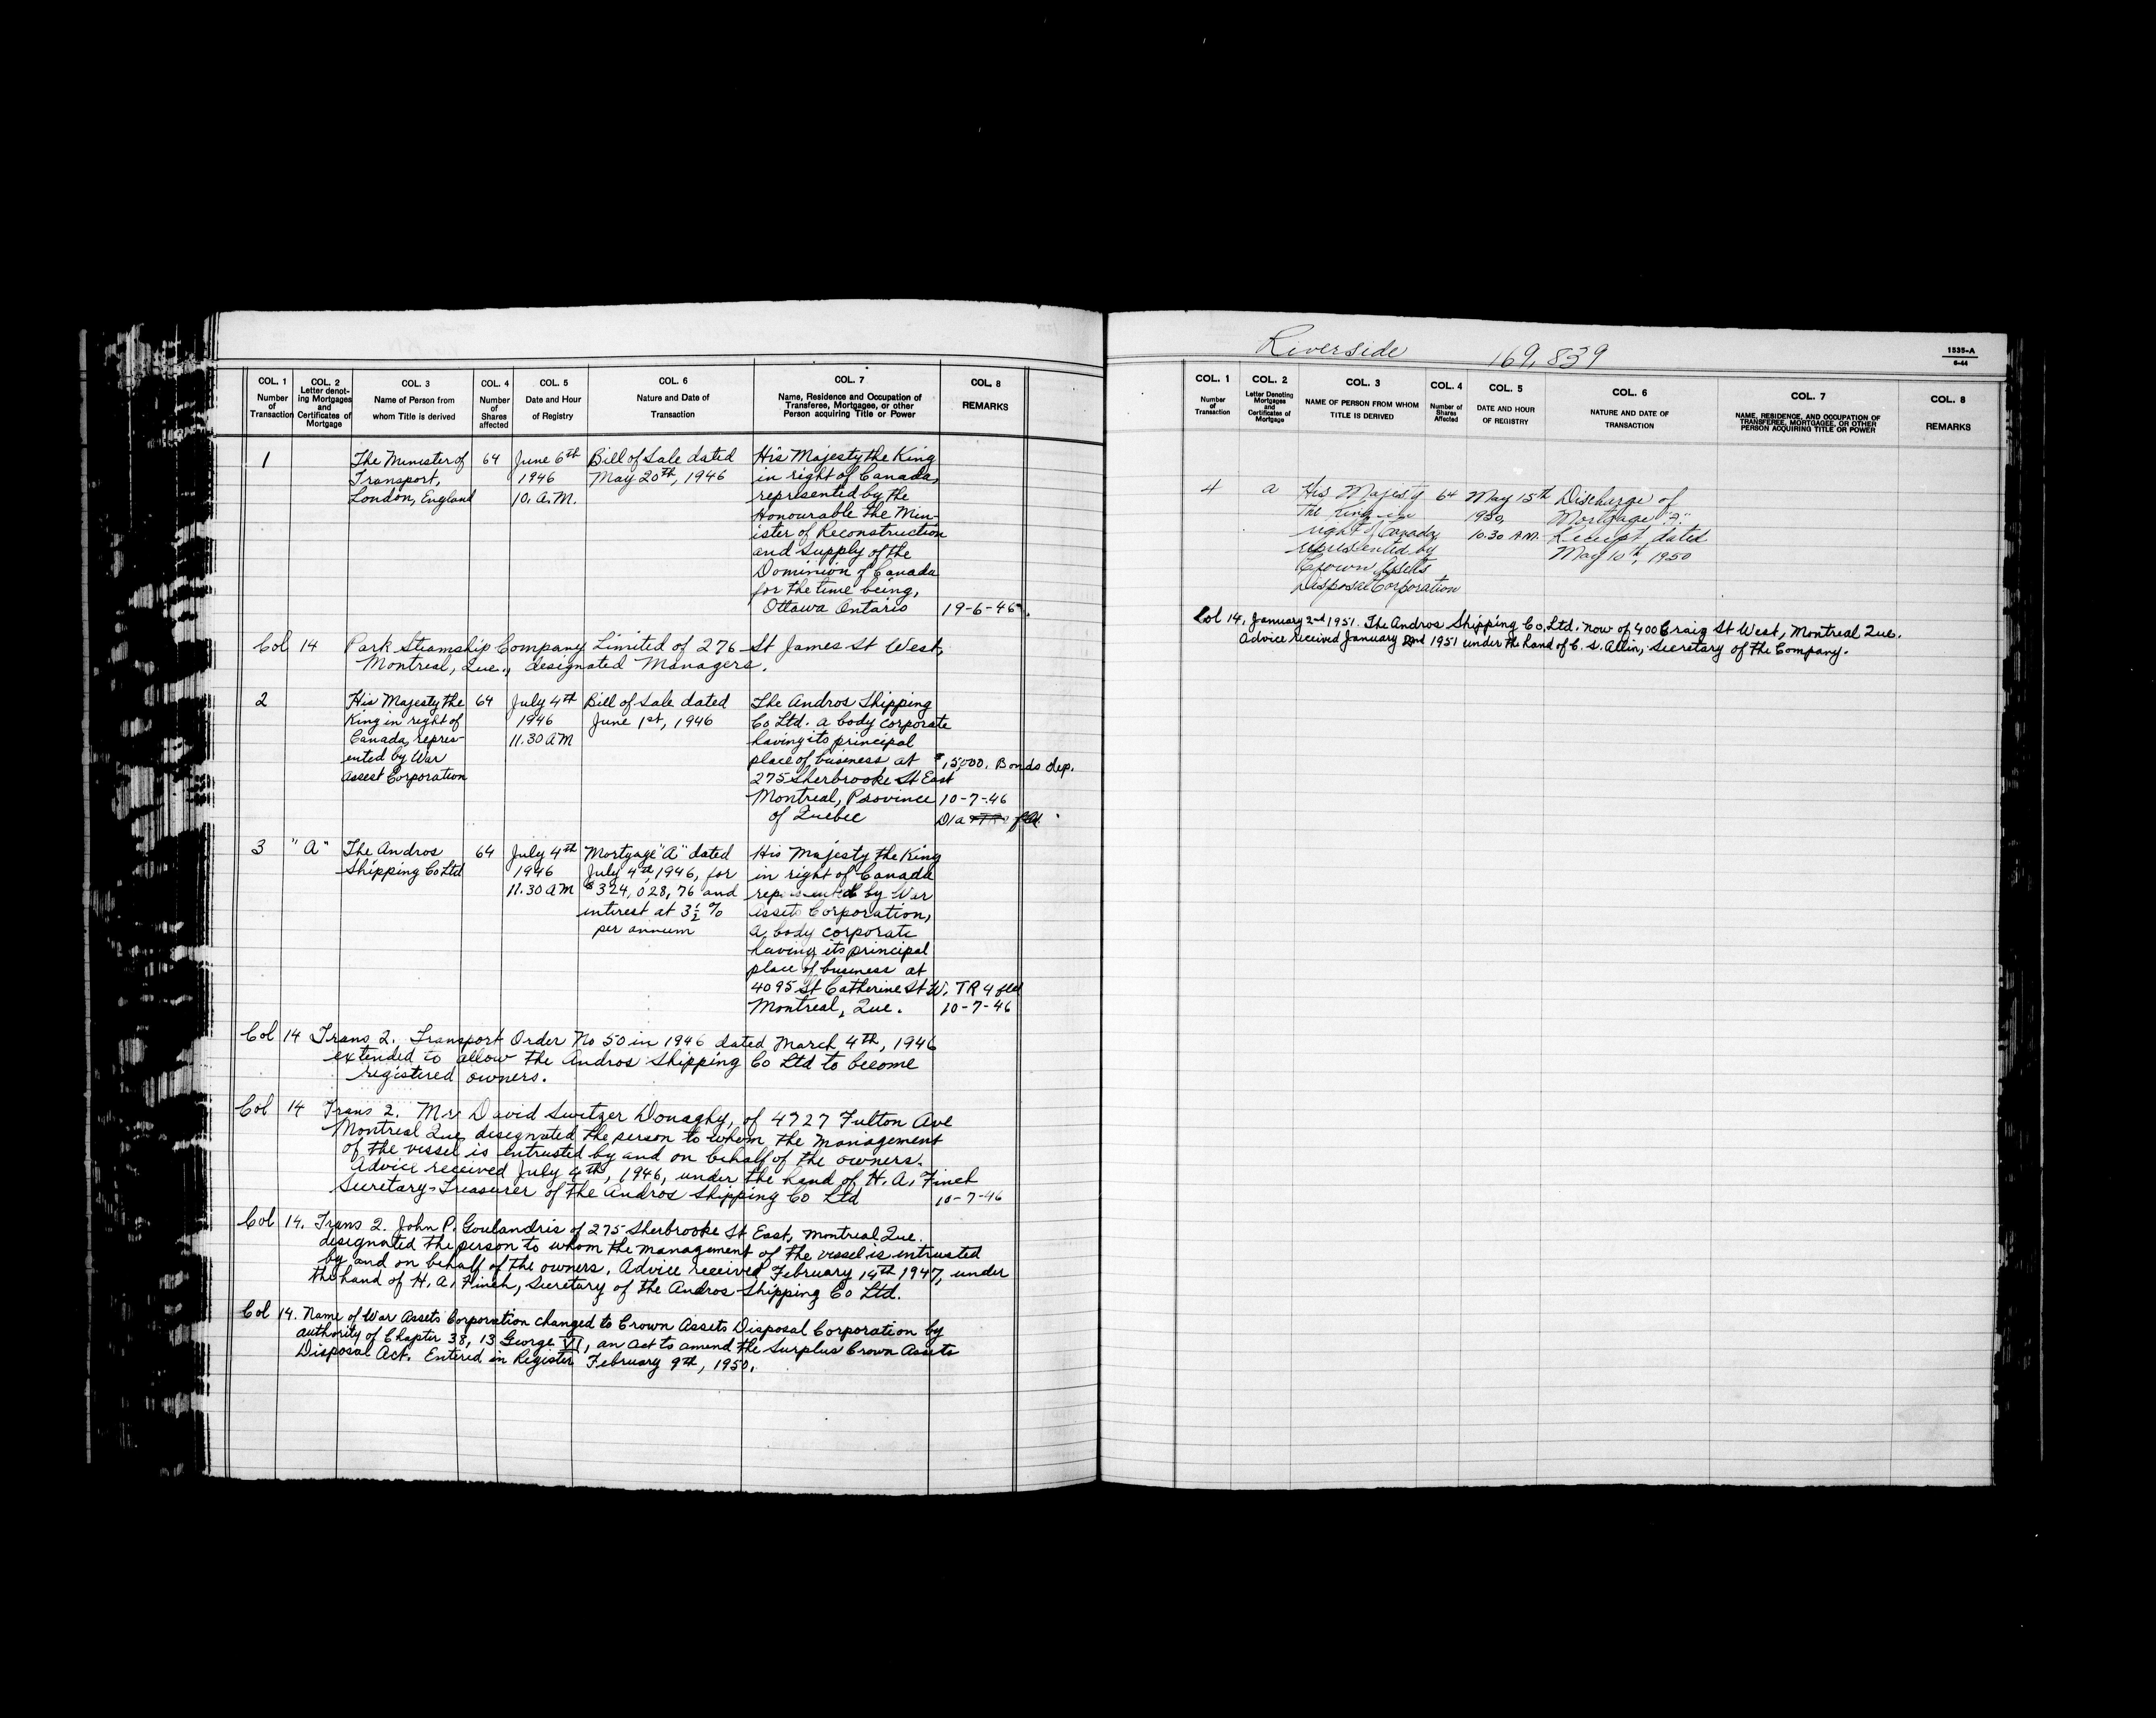 COL. 1 Number of Transaction
COL. 2 Letter denot- ing Mortgages and Certificates of Mortgage
COL. 3 Name of Person from whom Title is derived
COL. 4 Number of Shares affected
COL. 5 Date and Hour of Registry
COL. 6 Nature and Date of Transaction
COL. 7 Name, Residence and Occupation of Transferee, Mortgagee, or other Person acquiring Title or Power
COL. 8 REMARKS
1 The Minister of 64 June 6th Bill of Sale dated His Majesty the King
Transport, 1946 May 20th, 1946 in right of Canada,
London, England 10. A.M. represented by the
Honourable the Min-
ister of Reconstruction
and Supply of the
Dominion of Canada
for the time being,
Ottawa Ontario 19-6-46
Col 14 Park Steamship Company Limited of 276 St James St West,
Montreal, Que., designated Managers.
2 His Majesty the 64 July 4th Bill of Sale dated The Andros Shipping
King in right of 1946 June 1st, 1946 Co Ltd. a body corporate
Canada, repres- 11.30 AM having its principal
ented by War place of business at $15,000. Bonds dep.
Assest Corporation 275 Sherbrooke St East
Montreal, Province 10-7-46
of Quebec
3 "A" The Andros 64 July 4th Mortgage "A" dated His Majesty the King
Shipping Co Ltd 1946 July 4th, 1946, for in right of Canada
11.30 AM $324,028,76 and represented by War
interest at 3½ % assets Corporation,
per annum a body corporate
having its principal
place of business at
4095 St Catherine St W. TR 4 fld
Montreal, Que. 10-7-46
Col 14 Trans 2. Transport Order No 50 in 1946 dated March 4th, 1946
extended to allow the Andros Shipping Co Ltd to become
registered owners.
Col 14 Trans 2. Mr David Switzer Donaghy, of 4727 Fulton Ave
Montreal Que, designated the person to whom the management
of the vessel is entrusted by and on behalf of the owners.
Advice received July 4th, 1946, under the hand of H. A. Finch
Secretary-Treasurer of the Andros Shipping Co Ltd 10-7-46
Col 14. Trans 2. John P. Goulandris of 275 Sherbrooke St East, Montreal Que.
designated the person to whom the management of the vessel is intrusted
by and on behalf of the owners. Advice received February 14th 1947, under
the hand of H. A. Finch, Secretary of the Andros Shipping Co Ltd.
Col 14. Name of War Assets Corporation changed to Crown Assets Disposal Corporation by
authority of Chapter 38, 13 George VI, an act to amend the Surplus Crown Assets
Disposal Act. Entered in Register February 9th, 1950.
Riverside 169,839
1535-A
6-44
COL. 1 Number of Transaction
COL. 2 Letter Denoting Mortgages and Certificates of Mortgage
COL. 3 NAME OF PERSON FROM WHOM TITLE IS DERIVED
COL. 4 Number of Shares Affected
COL. 5 DATE AND HOUR OF REGISTRY
COL. 6 NATURE AND DATE OF TRANSACTION
COL. 7 NAME, RESIDENCE, AND OCCUPATION OF TRANSFEREE, MORTGAGEE, OR OTHER PERSON ACQUIRING TITLE OR POWER
COL. 8 REMARKS
4 a His Majesty 64 May 15th Discharge of
The King in 1950, Mortgage "A"
right of Canada 10.30 A.M. Receipt dated
represented by May 10th, 1950
Crown Assets
Disposal Corporation
Col 14. January 2nd 1951. The Andros Shipping Co. Ltd. now of 400 Craig St West, Montreal Que.
Advice received January 2nd 1951 under the hand of C. S. Allin, Secretary of the Company.